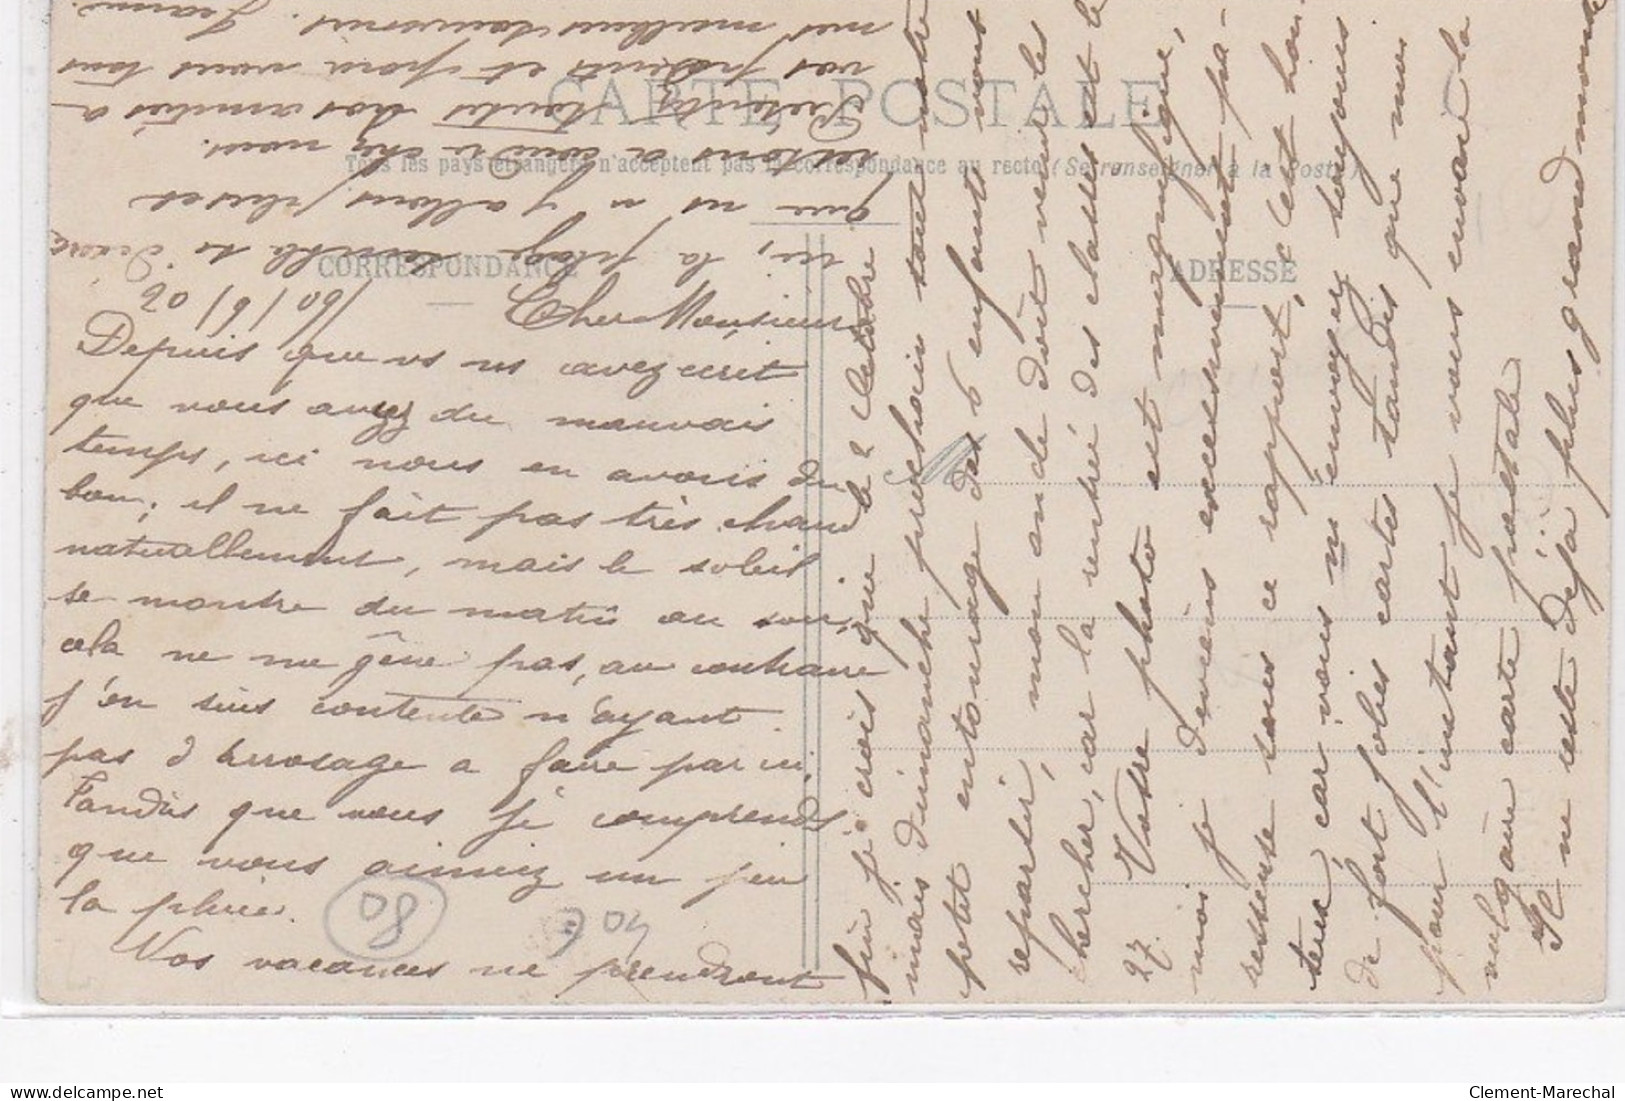 CARTE POSTALE
Tous les pays étrangers n'acceptent pas la correspondance au recto (Se renseigner à la Poste)
CORRESPONDANCE
ADRESSE
Cher Monsieur
Depuis que vs ns avez écrit
que vous avez du mauvais
temps, ici nous en avons du
bon; il ne fait pas très chaud
naturellement, mais le soleil
se montre du matin au soir,
cela ne me gêne pas, au contraire
j'en suis contente n'ayant
pas d'arrosage a faire par ici.
Tandis que vous je comprends
que vous aimiez un peu
la pluie.
Nos vacances ne prendront
fin je crois que le 2 Octobre
mais dimanche prochain tout notre
petit entourage des 6 enfants vont
repartir, mon oncle doit venir les
chercher, car la rentrée des classes est le
27.
Votre photo est magnifique,
moi je deviens excessivement pa-
resseuse sous ce rapport, c'est hon-
teux, car vous m'envoyez toujours
de fort jolies cartes tandis que moi
pour l'instant je vous envoie la
vulgaire carte postale
Il ne reste déjà plus grand monde
ici, la plage semble si
que ns n'y allons plus et
restons a coudre chez nous.
toutes nos amitiés a
vos parents et pour vous tous
mes meilleurs
80
40 €
Clement-Marechal